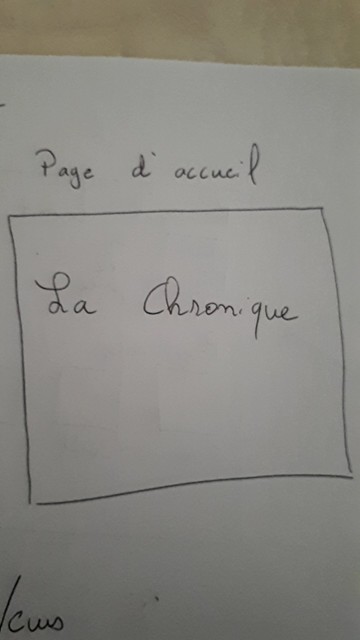 Page d'accueil
La Chronique
/cms